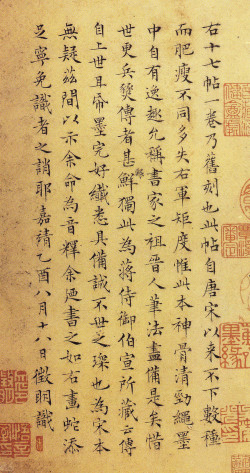 右十七帖一卷乃舊刻也此帖自唐宋以來不下數種
而肥瘦不同多失右軍矩度惟此本神骨清勁繩墨
中自有逸趣允稱書家之祖晉人筆法盡備是矣惜
世更兵燹傳者甚鮮獨此為蔣侍御伯宣所藏云傳
自上世耳帝墨完好纖悉具備誠不世之琛也為宋本
無疑茲間以示余命為音釋余廼書之如右畫蛇添
足寧免識者之誚耶嘉靖乙酉八月十八日徵明識